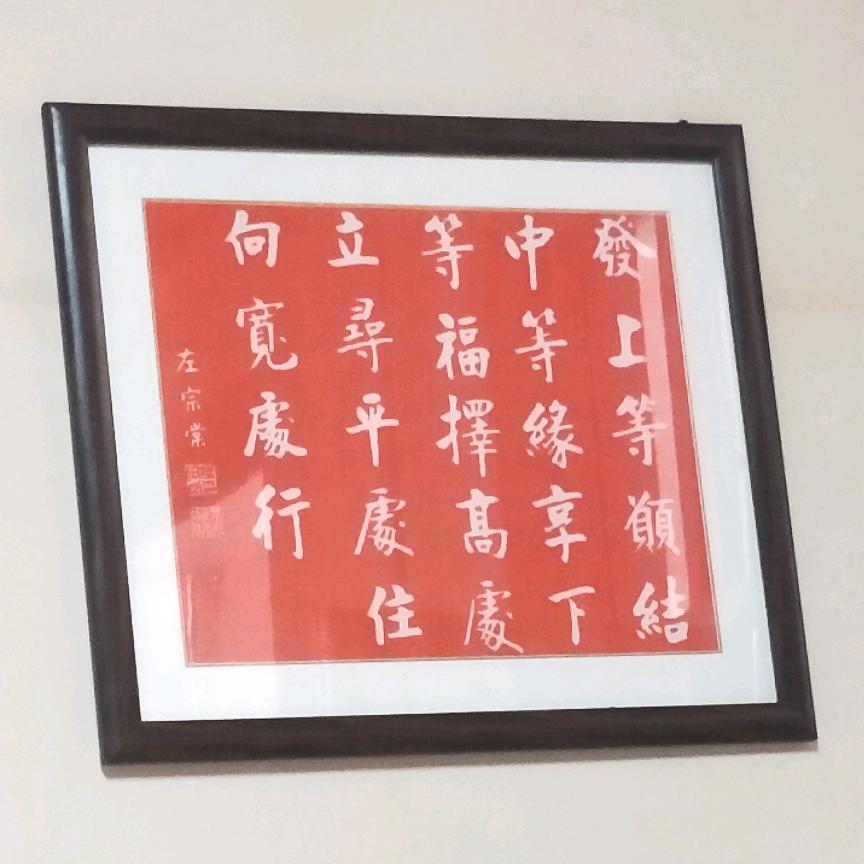 發上等願結
中等緣享下
等福擇高處
立尋平處住
向寬處行
左宗棠